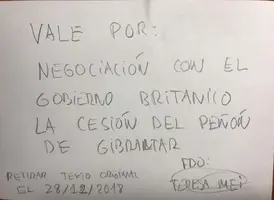 VALE POR:
NEGOCIACIÓN CON EL
GOBIERNO BRITANICO
LA CESIÓN DEL PEÑÓN
DE GIBRALTAR
FDO:
TERESA MEI
RETIRAR TEXTO ORIGINAL
EL 28/12/2018